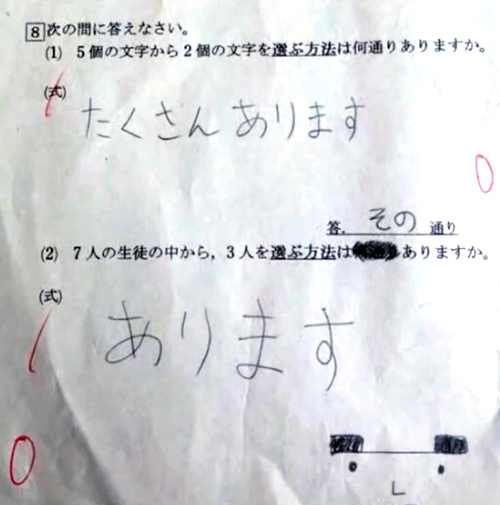 8 次の問に答えなさい。
(1) 5個の文字から2個の文字を選ぶ方法は何通りありますか。
(式)
たくさん あります
0
答. その 通り
(2) 7人の生徒の中から,3人を選ぶ方法は ありますか。
(式)
あります
0